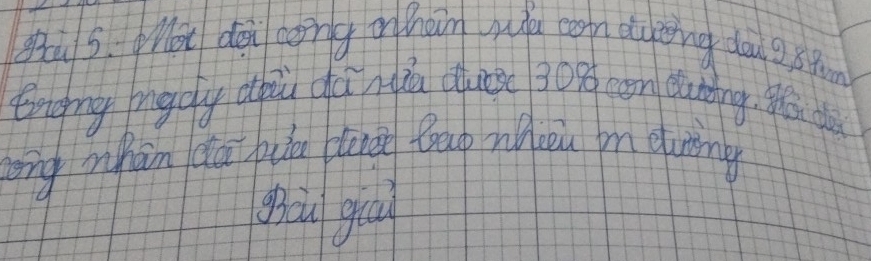 Bài 5. Một đội công nhân sửa con đường dài 2,8 km
trong ngày đầu đã sửa được 30% con đường. Hỏi đội
công nhân đã sửa được bao nhiêu m đường
Bài giải